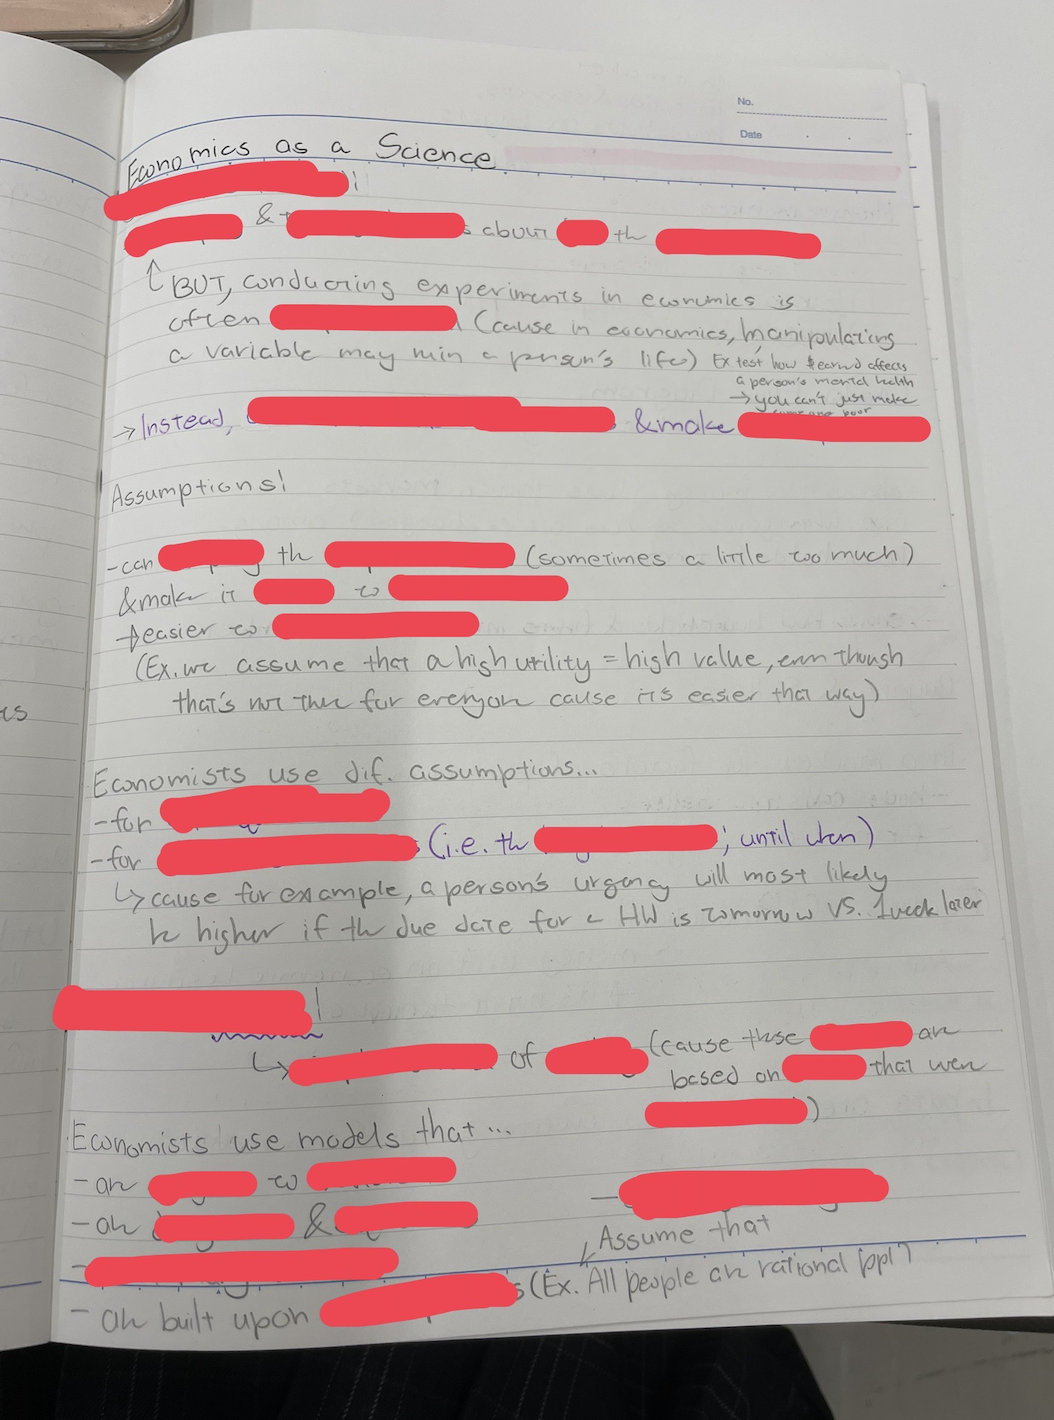 No.
Date
Economics as a Science
!
& about th
BUT, conducting experiments in economics is
often (cause in economics, manipulating
a variable may ruin a person's life) Ex test how $ earned affects
a person's mental health
→ you can't just make
someone poor
→ Instead, & make
Assumptions!
- can th (sometimes a little too much)
& make it to
→ easier to
(Ex. we assume that a high utility = high value, even though
that's not true for everyone cause it's easier that way)
Economists use dif. assumptions...
- for
- for (i.e. th ; until when)
↳ cause for example, a person's urgency will most likely
be higher if th due date for a HW is tomorrow VS. 1 week later
!
↳ of (cause these are
based on that were
)
Economists use models that...
- are to
- are &
-
-
Assume that
- are built upon s (Ex. All people are rational ppl)